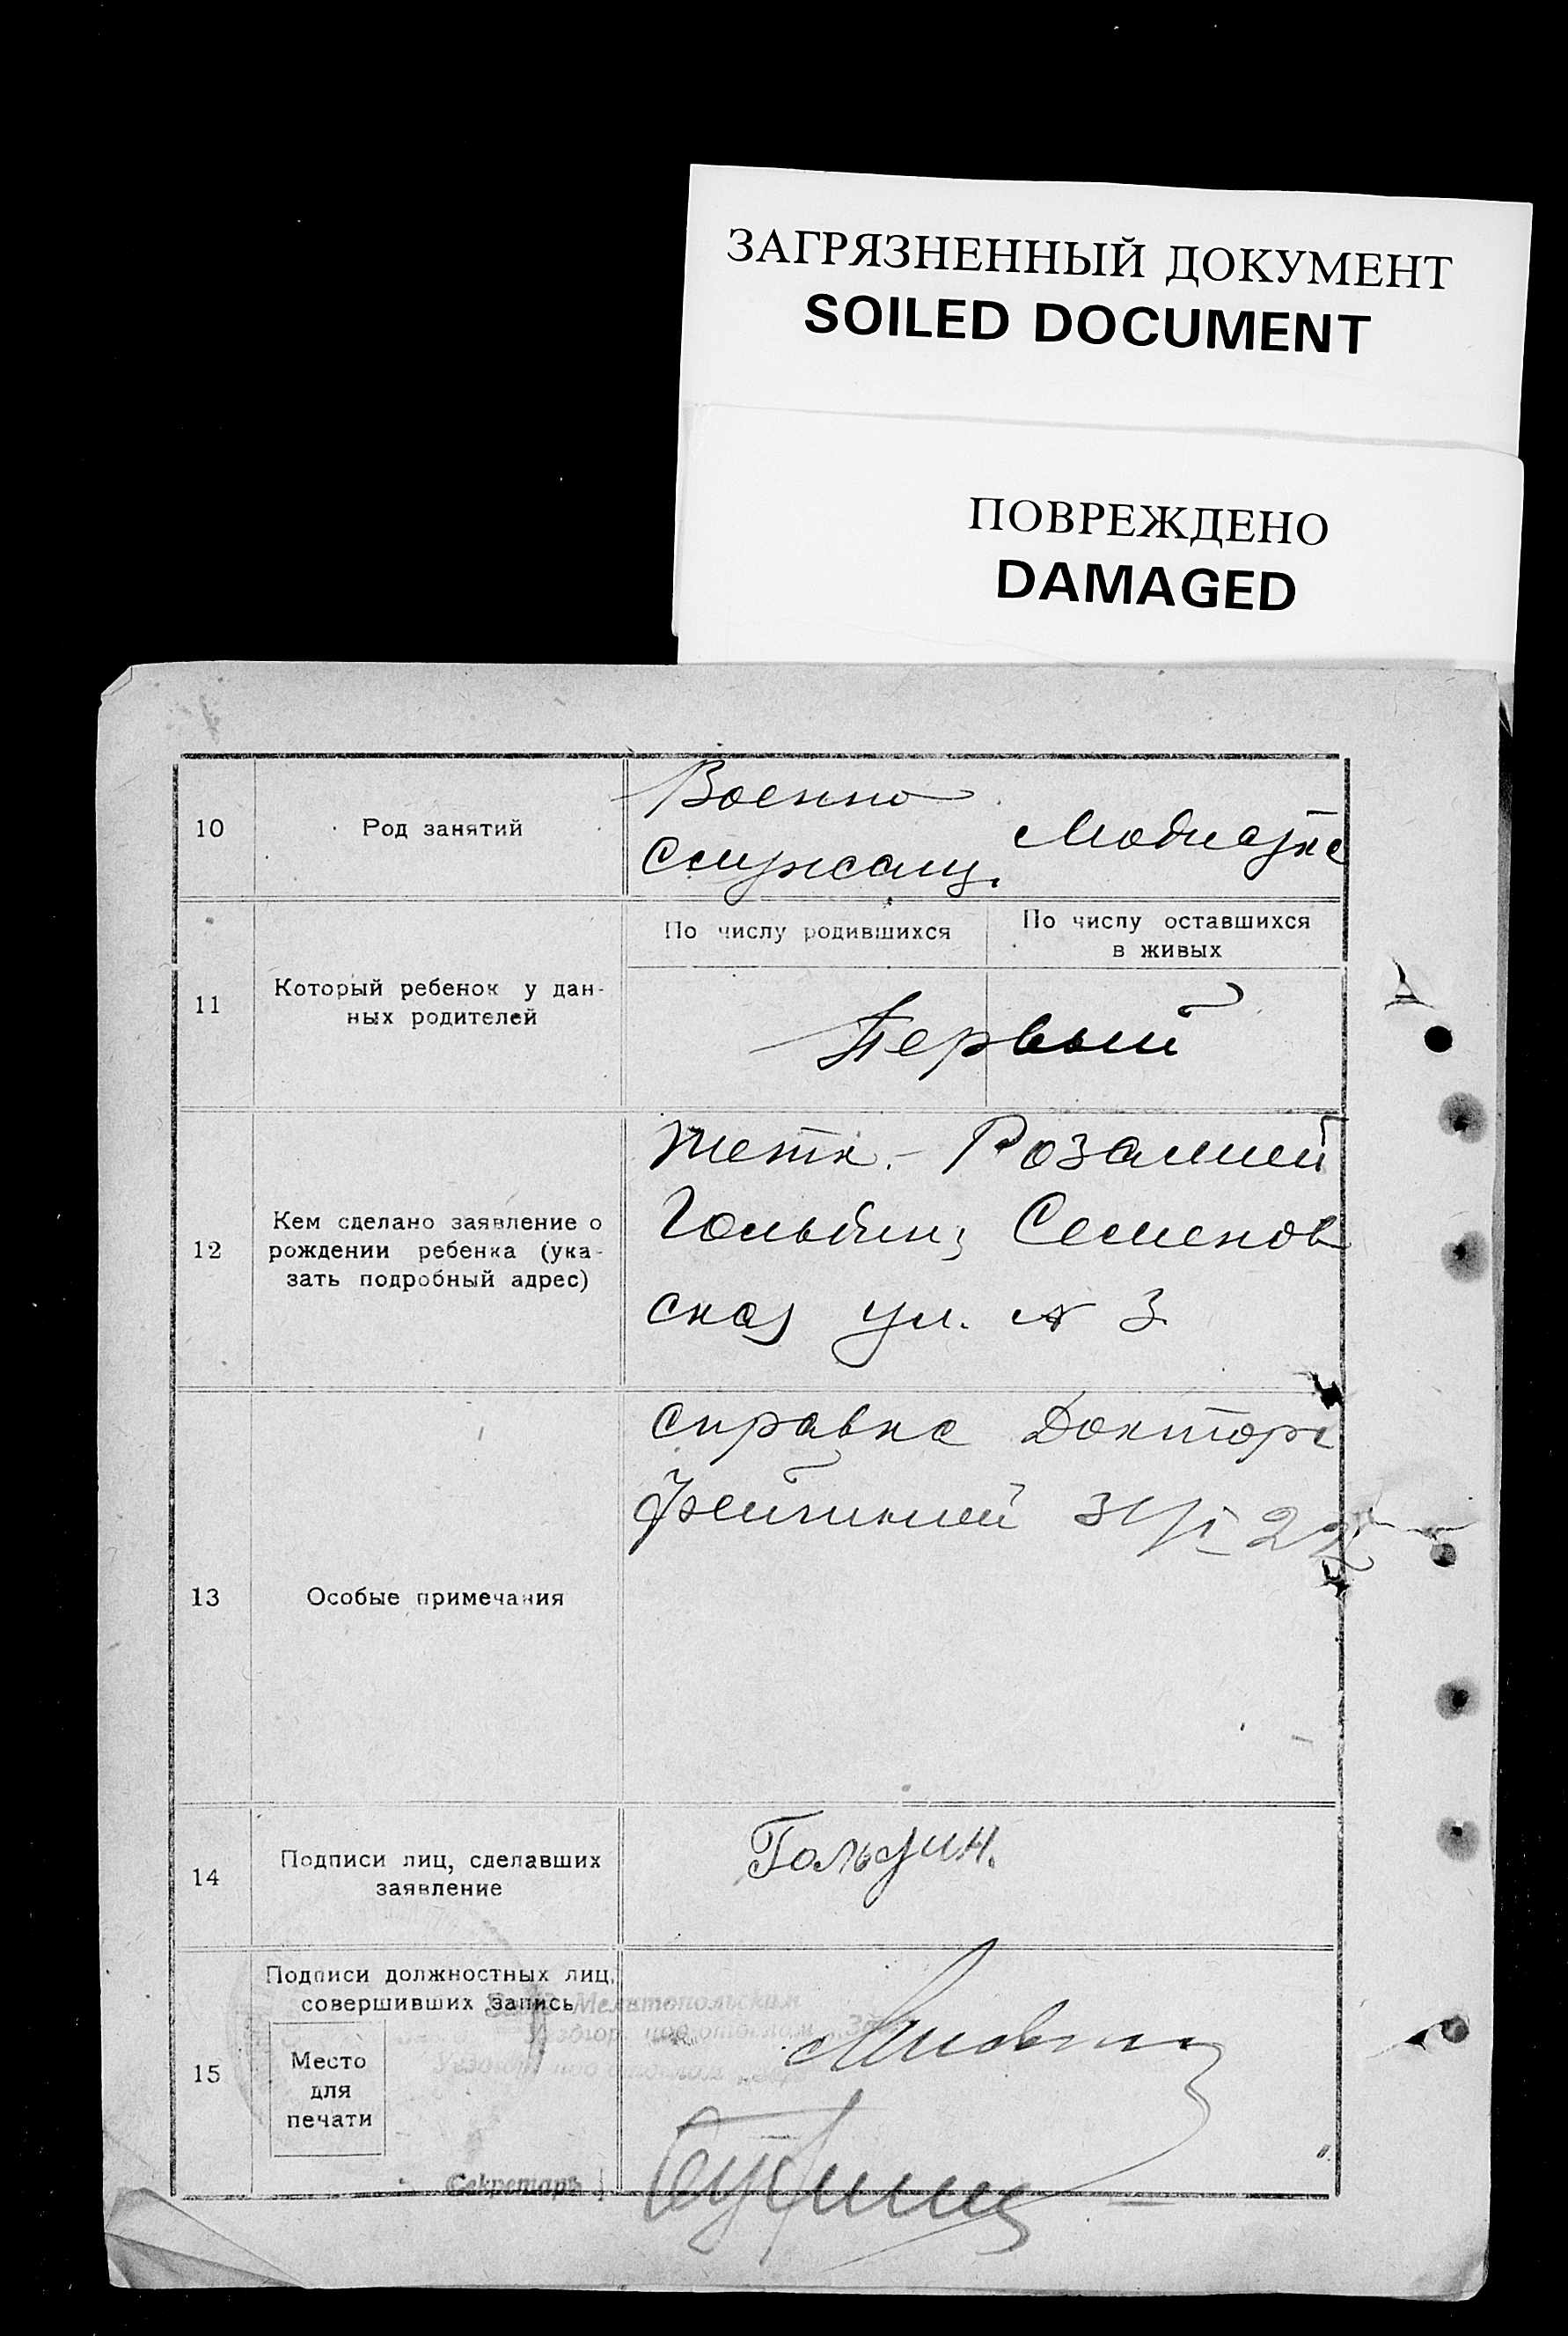 ЗАГРЯЗНЕННЫЙ ДОКУМЕНТ
SOILED DOCUMENT
ПОВРЕЖДЕНО
DAMAGED
10
Род занятий
Военно
служащ.
Модистка
11
Который ребенок у дан-
ных родителей
По числу родившихся
По числу оставшихся
в живых
Первый
12
Кем сделано заявление о
рождении ребенка (ука-
зать подробный адрес)
Розалией
Гольдин, Семенов
ская ул. № 3
13
Особые примечания
справка Доктора
14
Подписи лиц, сделавших
заявление
Гольдин.
15
Подписи должностных лиц,
совершивших запись
Место
для
печати
Мелитопольским
Секретарь